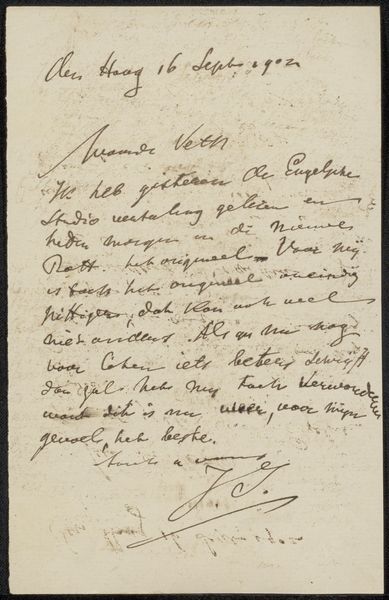 Den Haag 16 Septb 1902
Waarde Veth
Ik heb gisteren de Engelsche
Studio vertaling gelezen en
heden morgen in de nieuwe
Rott. het origineel. Voor mij
is toch het origineel oneindig
pittiger, dat kan ook wel
niet anders. Als ge nu nog
voor Cohen iets beters schrijft
dan zal het mij toch verwonderen
want dit is nu weer, voor mijn
gevoel, het beste.
J. I.